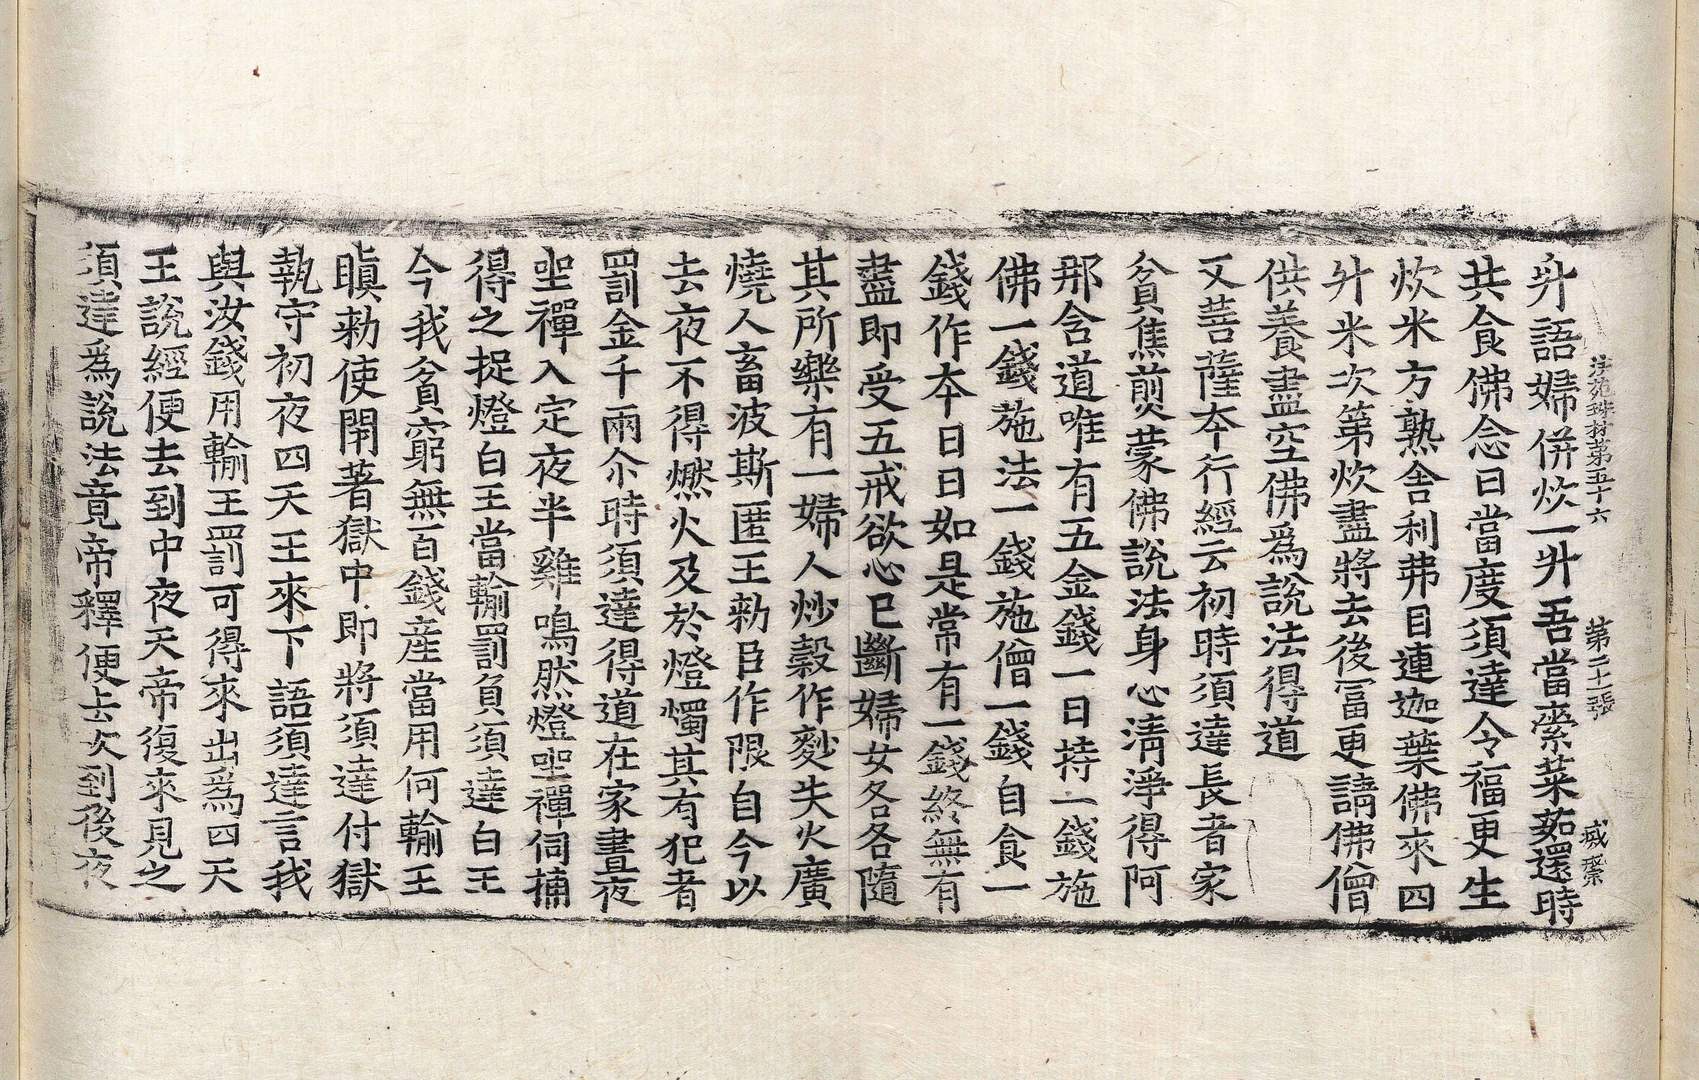 法苑珠林第五十六　第二十一張　感紫
升語婦併炊一升吾當索菜茹還時
共食佛念曰當度須達令福更生
炊米方熟舍利弗目連迦葉佛來四
升米次第炊盡將去後富更請佛僧
供養盡空佛為說法得道
又菩薩夲行經云初時須達長者家
貧焦煎蒙佛說法身心清淨得阿
那含道唯有五金錢一日持一錢施
佛一錢施法一錢施僧一錢自食一
錢作夲日日如是常有一錢終無有
盡即受五戒欲心已斷婦女各各隨
其所樂有一婦人炒穀作麨失火廣
燒人畜波斯匿王勑臣作限自今以
去夜不得燃火及於燈燭其有犯者
罰金千兩尒時須達得道在家晝夜
坐禪入定夜半雞鳴然燈坐禪伺捕
得之捉燈白王當輸罰負須達白王
今我貧窮無百錢產當用何輸王
瞋勑使閉著獄中即將須達付獄
執守初夜四天王來下語須達言我
與汝錢用輸王罰可得來出為四天
王說經便去到中夜天帝復來見之
須達為說法竟帝釋便去次到後夜